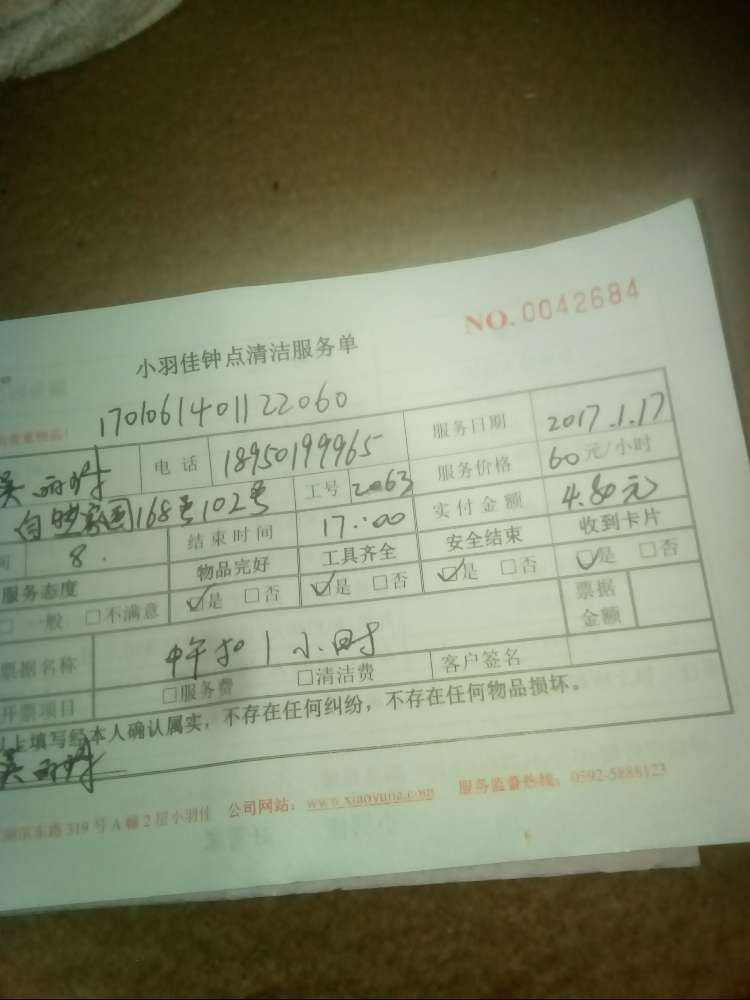 NO.0042684
小羽佳钟点清洁服务单
1701061401122060
电话 18950199965 服务日期 2017.1.17
168号102号 工号 2063 服务价格 60元/小时
8. 结束时间 17:00 实付金额 4.80元
服务态度 物品完好 工具齐全 安全结束 收到卡片
□一般 □不满意 ☑是 □否 ☑是 □否 ☑是 □否 ☑是 □否
票据名称 中午扣1小时 票据金额
开票项目 □服务费 □清洁费 客户签名
以上填写经本人确认属实，不存在任何纠纷，不存在任何物品损坏。
东路319号A幢2层小羽佳 公司网站：www.xiaoyujia.com 服务监督热线：0592-5888123